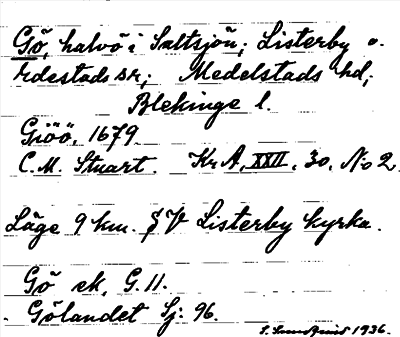 Gö, halvö i Saltsjön; Listerby o.
rdestads sr; Medelstads hd;
Blekinge l.
Giöö, 1679.
C.M. Stuart. Kr A, XXII, 30, No 2.
Läge 9 km. SV Listerby kyrka.
Gö ek, G. 11.
Gölandet Sj: 96.
1936.